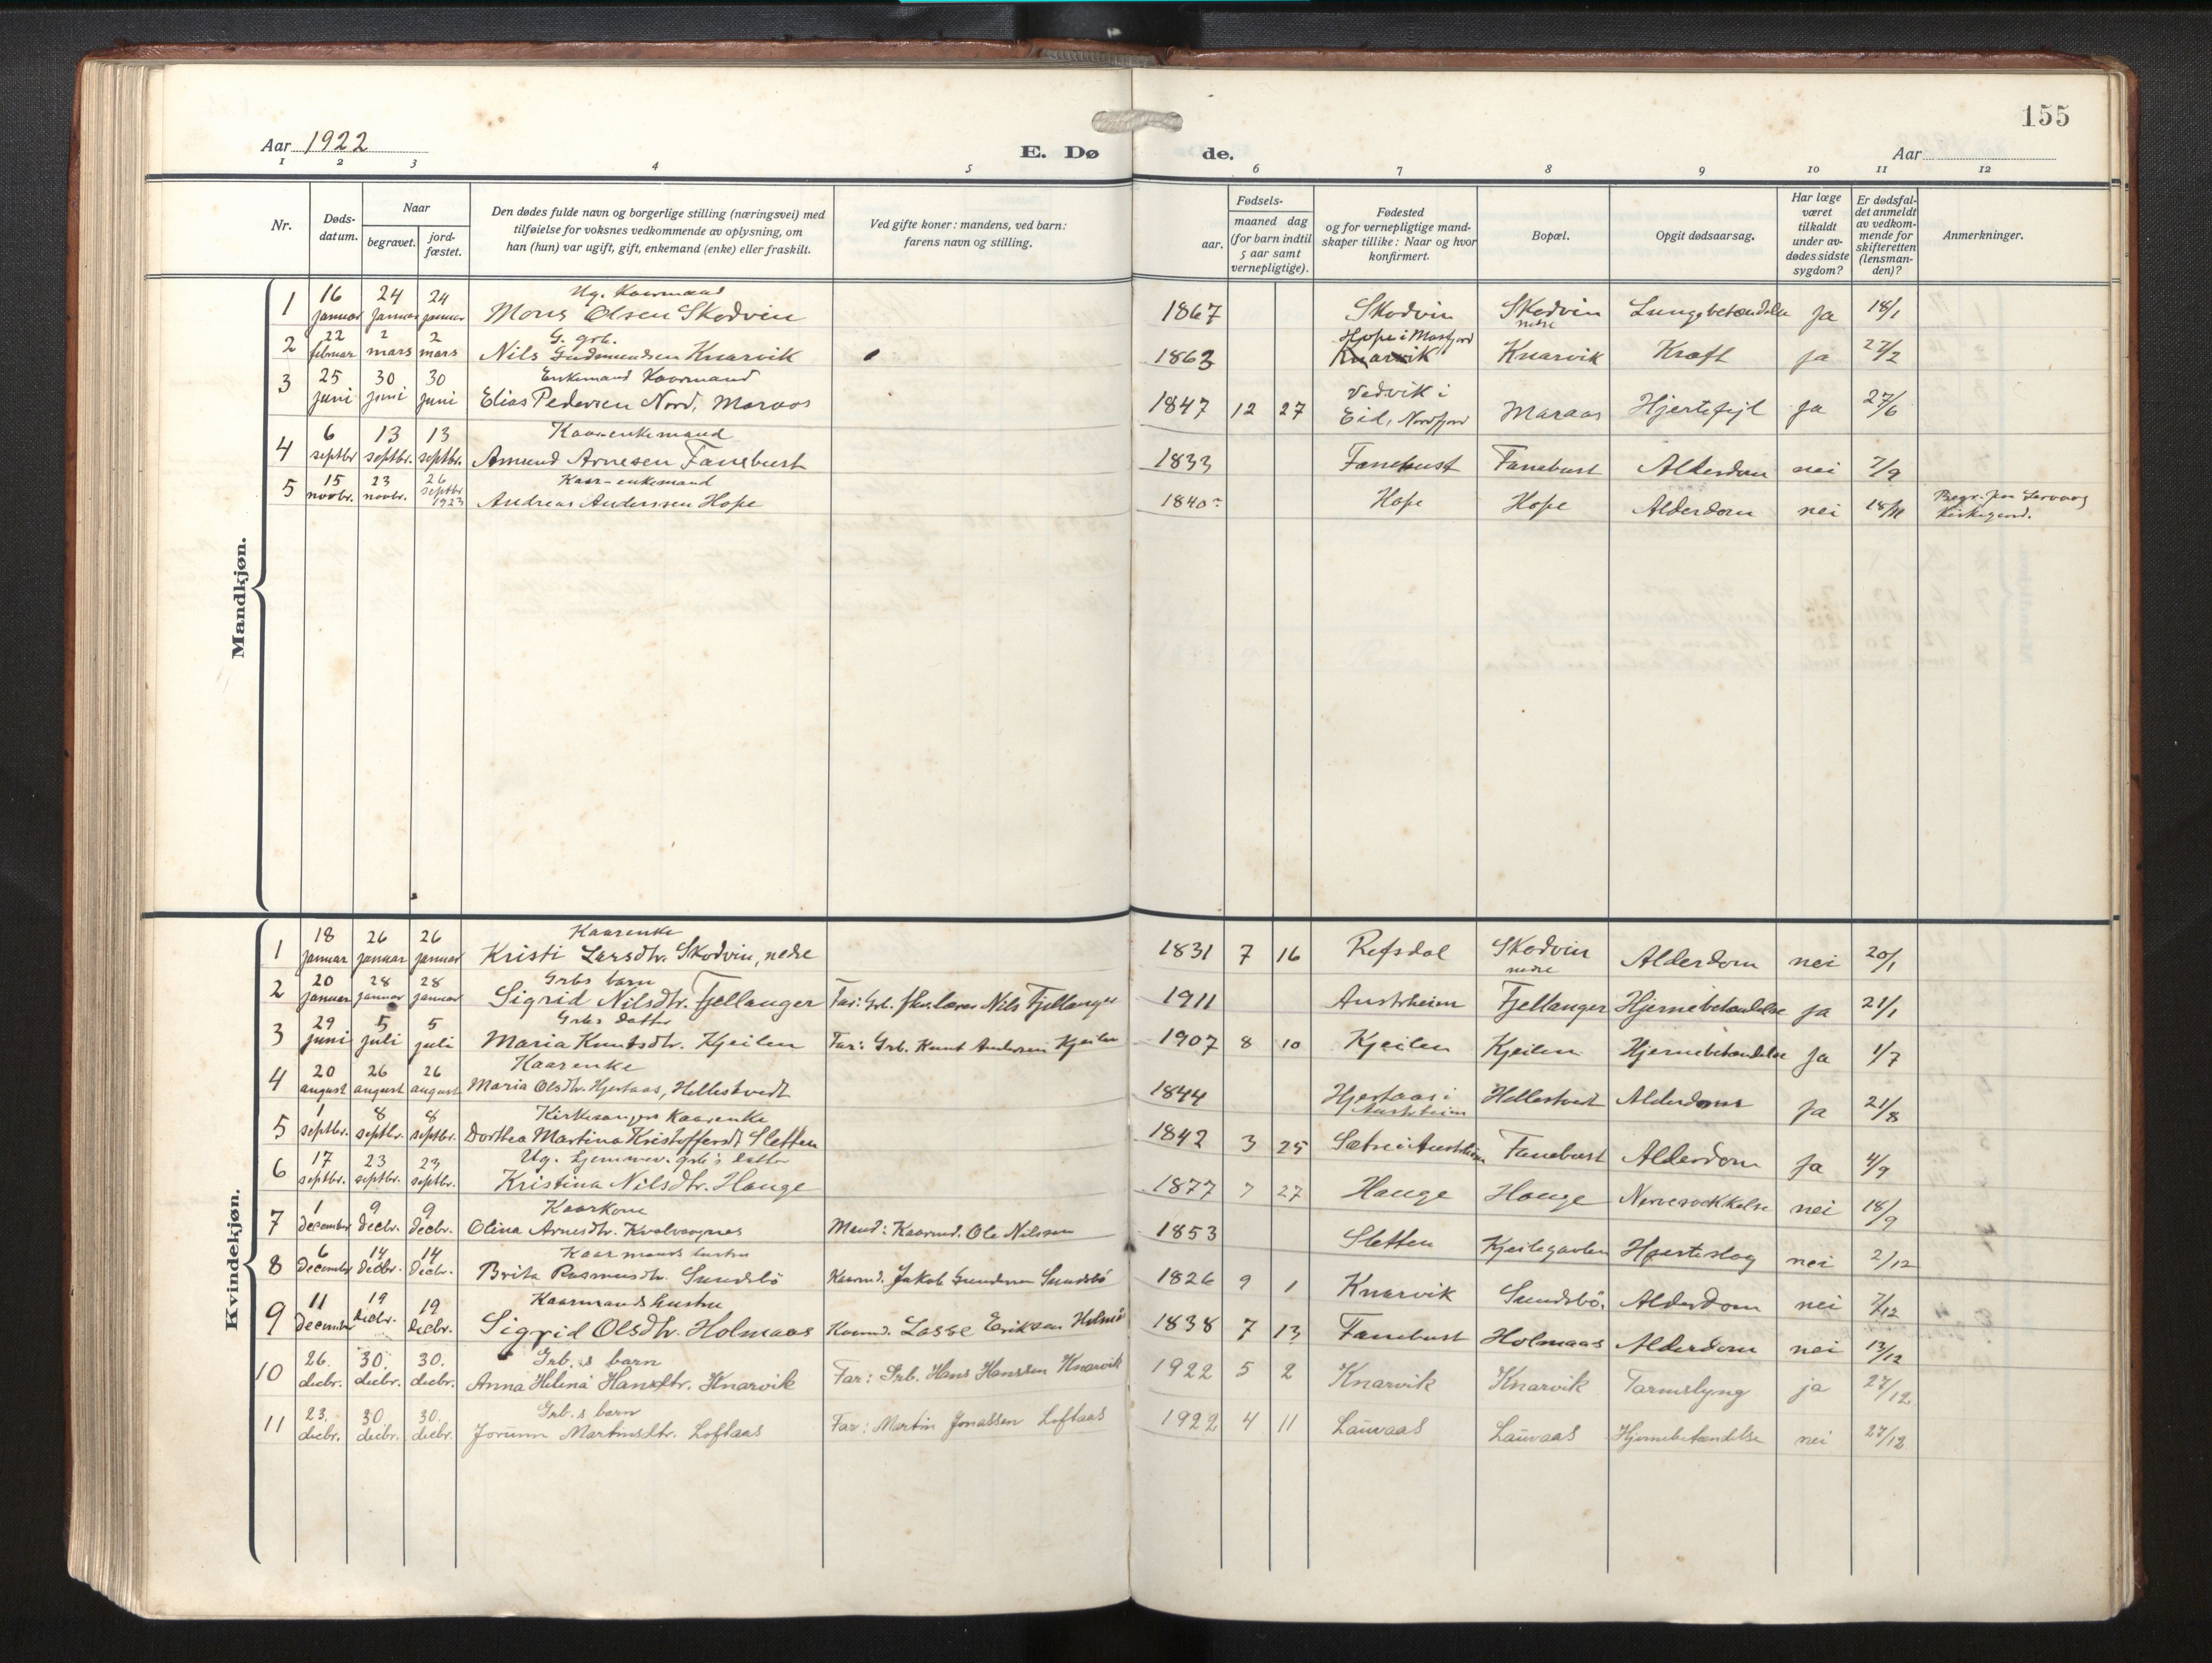 155
Aar 1922
E. Dø de.
Aar
1 2 3 4 5 6 7 8 9 10 11 12
Nr.
Døds-
datum.
Naar
begravet.
jord-
fæstet.
Den dødes fulde navn og borgerlige stilling (næringsvei) med
tilføielse for voksnes vedkommende av oplysning, om
han (hun) var ugift, gift, enkemand (enke) eller fraskilt.
Ved gifte koner: mandens, ved barn:
farens navn og stilling.
Fødsels-
aar.
maaned dag
(for barn indtil
5 aar samt
vernepligtige).
Fødested
og for vernepligtige mand-
skaper tillike: Naar og hvor
konfirmert.
Bopæl.
Opgit dødsaarsag.
Har læge
været
tilkaldt
under av-
dødes sidste
sygdom?
Er dødsfal-
det anmeldt
av vedkom-
mende for
skifteretten
(lensman-
den)?
Anmerkninger.
Mandkjøn.
16 24 24 Ug. Kaarmand
1 januar januar januar Mons Olsen Skodvin 1867 Skodvin Skodvin nedre Lungebetændelse Ja 18/1
22 2 2 G. grb. Hope i Masfjord
2 februar mars mars Nils Gudmundsen Knarvik 1863 Knarvik Knarvik Kræft ja 27/2
25 30 30 Enkemand Kaarmand Vedvik i
3 juni juni juni Elias Pedersen Nord, Maraas 1847 12 27 Eid, Nordfjord Maraas Hjertefejl Ja 27/6
6 13 13 Kaar-enkemand
4 septbr septbr. septbr. Amund Arnesen Fanebust 1833 Fanebust Fanebust Alderdom nei 7/9
15 23 26 Kaar-enkemand
5 novbr. novbr. septbr. 1923 Andreas Anderssen Hope 1840 Hope Hope Alderdom nei 18/11 Begr. paa
Kirkegaard.
Kvindekjøn.
18 26 26 Kaarenke
1 januar januar januar Kristi Larsdtr. Skodvin, nedre 1831 7 16 Refsdal Skodvin nedre Alderdom nei 20/1
20 28 28 Grbs barn
2 januar januar januar Sigrid Nilsdtr. Fjellanger Far: Grb. Nils Fjellanger 1911 Austrheim Fjellanger Hjernebetændelse ja 21/1
29 5 5 Grbs datter
3 juni juli juli Maria Knutsdtr. Kjeilen Far: Grb. Knut Andersen Kjeilen 1907 8 10 Kjeilen Kjeilen Hjernebetændelse Ja 1/7
20 26 26 Kaarenke
4 august august august Maria Olsdtr. Hjertaas, Hellestvedt 1844 Hjertaas i Austrheim Hellestvedt Alderdom Ja 21/8
1 8 8 Kirkesanger Kaarenke
5 septbr. septbr. septbr. Dorthea Martina Kristoffersdtr Sletten 1842 3 25 Sætre i Austrheim Fanebust Alderdom Ja 4/9
17 23 23 Ug. hjemmev. grb's datter
6 septbr. septbr. septbr. Kristina Nilsdtr. Hauge 1877 7 27 Hauge Hauge nei 18/9
1 9 9 Kaarkone
7 december decbr. decbr. Olina Arnesdtr. Kvalvaagnes Mand: Kaarmd. Ole Nilssen 1853 Sletten Hjerteslag nei 2/12
6 14 14 Kaarmands hustru
8 december decbr. decbr. Brita Rasmusdtr. Sundsbö Kaarmd. Jakob Gundersen Sundsbö 1826 9 1 Knarvik Sundsbö. Alderdom nei 7/12
11 19 19 Kaarmands hustru
9 december decbr. decbr. Sigrid Olsdtr. Holmaas Kaarmd. Lasse Eriksen 1838 7 13 Fanebust Holmaas Alderdom nei 13/12
26. 30. 30. Grb.s barn
10 decbr. decbr. decbr. Anna Helina Hansdtr. Knarvik Far: Grb. Hans Hanssen Knarvik 1922 5 2 Knarvik Knarvik Tarmslyng ja 27/12
23. 30. 30. Grb.s barn
11 decbr. decbr. decbr. Jorunn Martinsdtr. Loftaas Far: Martin Jonassen Loftaas 1922 4 11 Lauvaas Lauvaas Hjernebetændelse nei 27/12